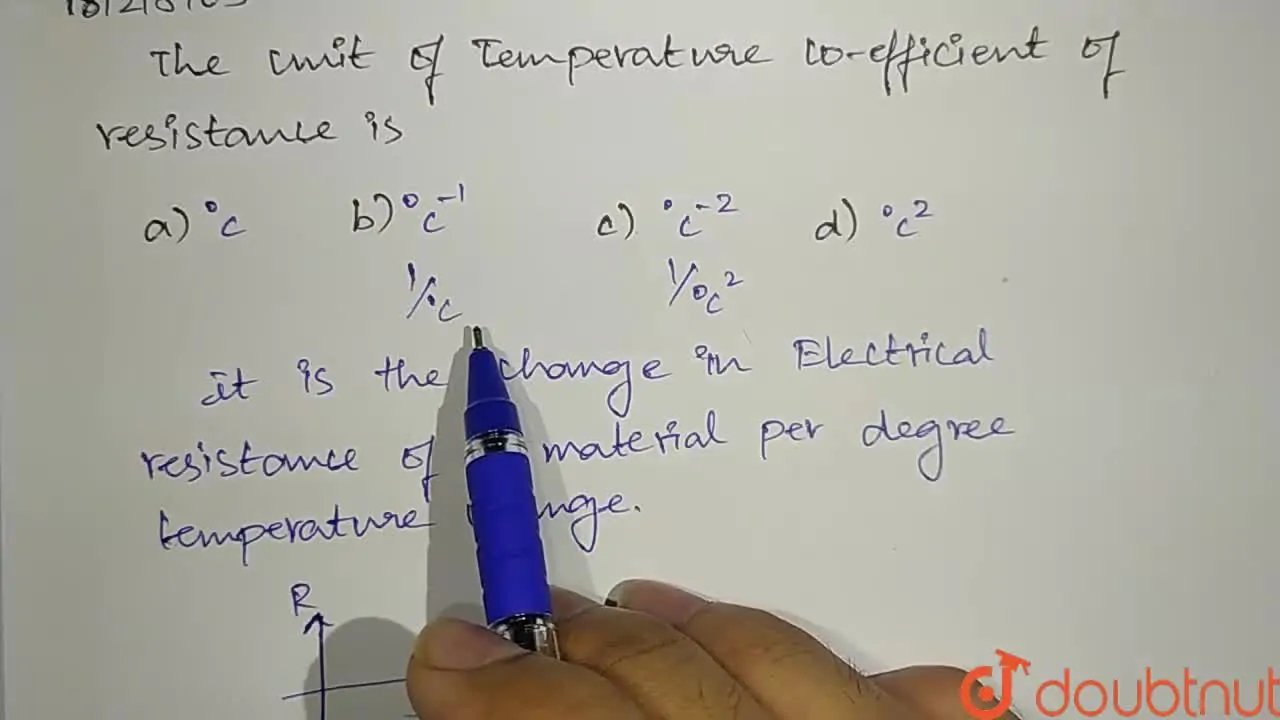 The unit of Temperature co-efficient of
resistance is
a) °c b) °c⁻¹ c) °c⁻² d) °c²
1/°c 1/°c²
it is the change in Electrical
resistance of material per degree
temperature
R
doubtnut